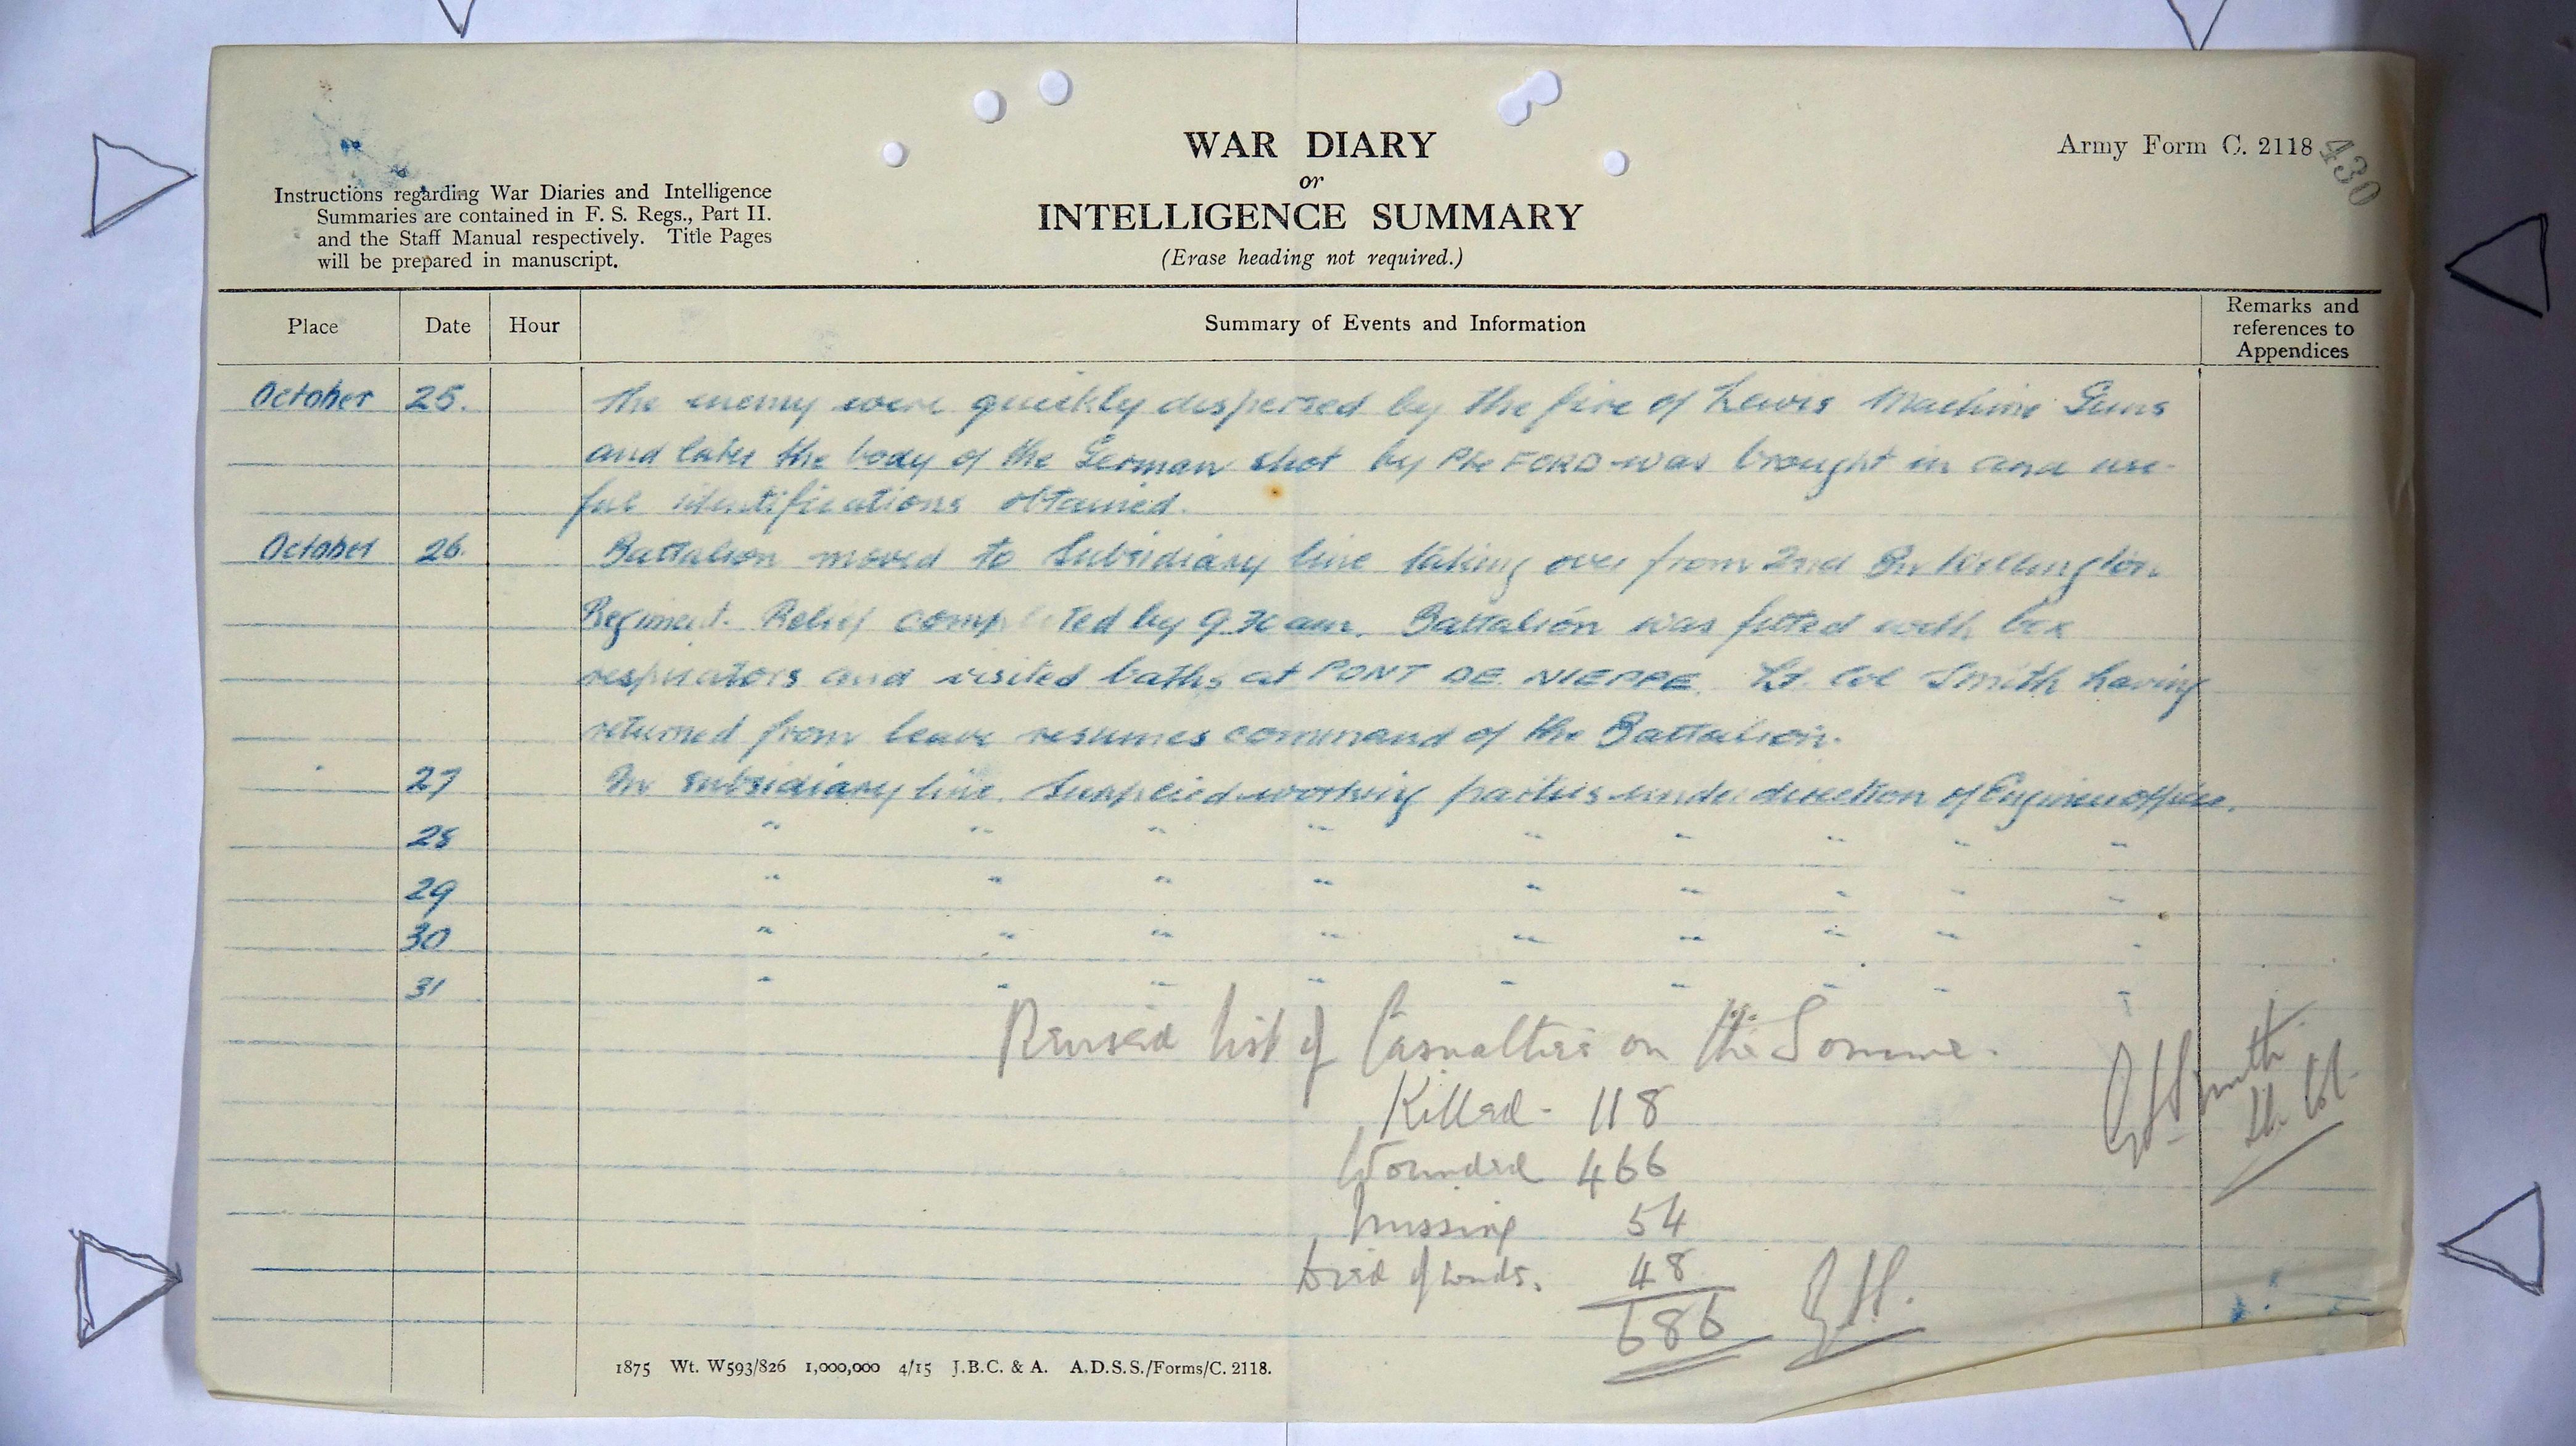 WAR DIARY
or
INTELLIGENCE SUMMARY
(Erase heading not required.)
Army Form C. 2118
430
Instructions regarding War Diaries and Intelligence
Summaries are contained in F. S. Regs., Part II.
and the Staff Manual respectively. Title Pages
will be prepared in manuscript.
Place Date Hour Summary of Events and Information Remarks and
references to
Appendices
October 25. The enemy were quickly dispersed by the fire of Lewis Machine Guns
and later the body of the German shot by Pte FORD was brought in and use-
ful identifications obtained.
October 26. Battalion moved to Subsidiary line taking over from 2nd Bn Wellington
Regiment. Relief completed by 9.30 am. Battalion was fitted with box
respirators and visited baths at PONT DE NIEPPE. Lt. Col Smith having
returned from leave resumes command of the Battalion.
" 27 In subsidiary line. Supplied working parties under direction of Engineer officer.
28 " " " " " " " " "
29 " " " " " " " " "
30 " " " " " " " " "
31 " " " " " " " " "
Revised list of Casualties on the Somme.
Killed - 118
Wounded 466
Missing 54
Died of wnds. 48
686
G.S.Smith
Lt. Col.
1875 Wt. W593/826 1,000,000 4/15 J.B.C. & A. A.D.S.S./Forms/C. 2118.